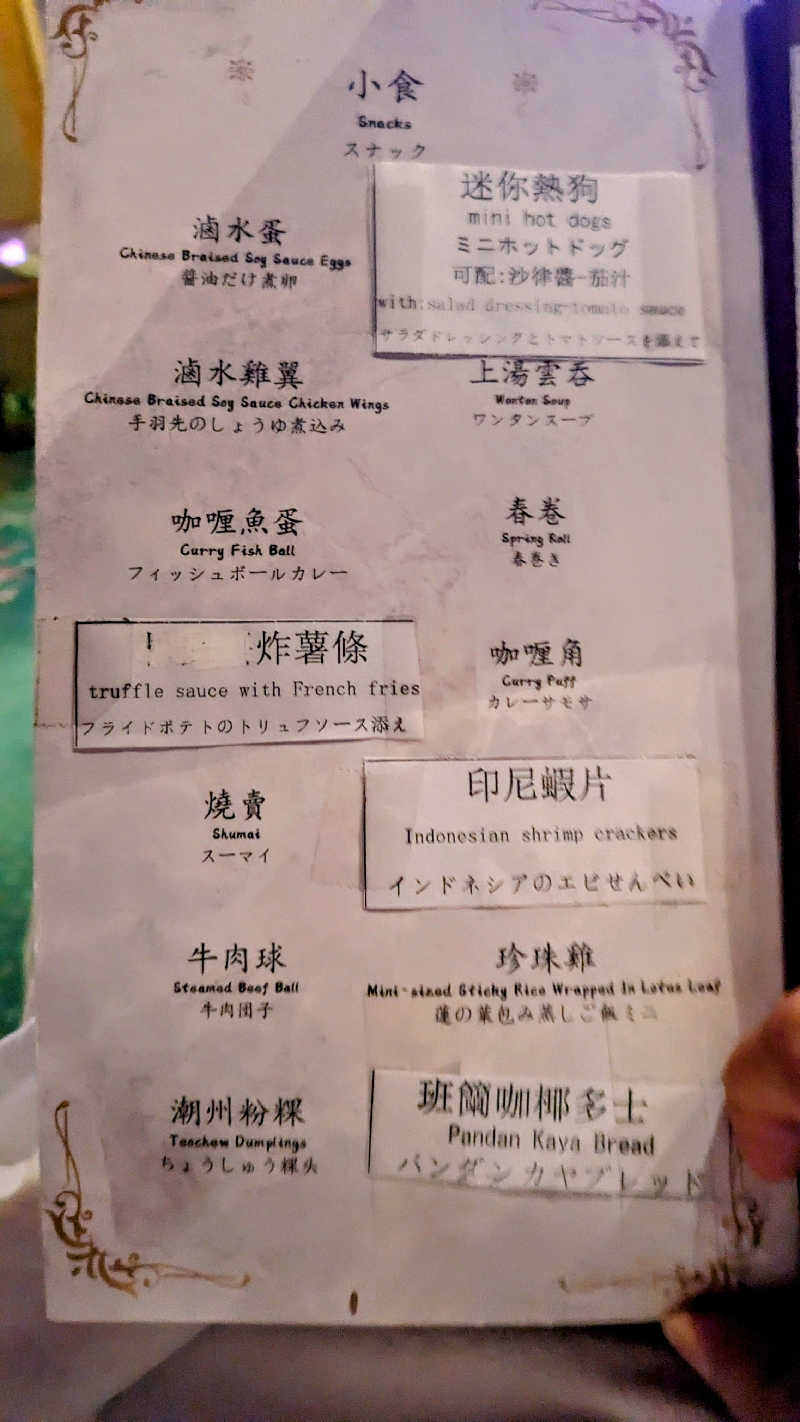 小食
Snacks
スナック
滷水蛋
Chinese Braised Soy Sauce Eggs
醤油だけ煮卵
迷你熱狗
mini hot dogs
ミニホットドッグ
可配:沙律醬-茄汁
with:salad dressing-tomato sauce
サラダドレッシングとトマトソースを添えて
滷水雞翼
Chinese Braised Soy Sauce Chicken Wings
手羽先のしょうゆ煮込み
上湯雲吞
Wonton Soup
ワンタンスープ
咖喱魚蛋
Curry Fish Ball
フィッシュボールカレー
春卷
Spring Roll
春巻き
炸薯條
truffle sauce with French fries
フライドポテトのトリュフソース添え
咖喱角
Curry Puff
カレーサモサ
燒賣
Shumai
スーマイ
印尼蝦片
Indonesian shrimp crackers
インドネシアのエビせんべい
牛肉球
Steamed Beef Ball
牛肉団子
珍珠雞
Mini-sized Sticky Rice Wrapped In Lotus Leaf
蓮の葉包み蒸しご飯ミニ
潮州粉粿
Teochew Dumplings
ちょうしゅう粿头
班蘭咖椰多士
Pandan Kaya Bread
パンダンカヤブレッド